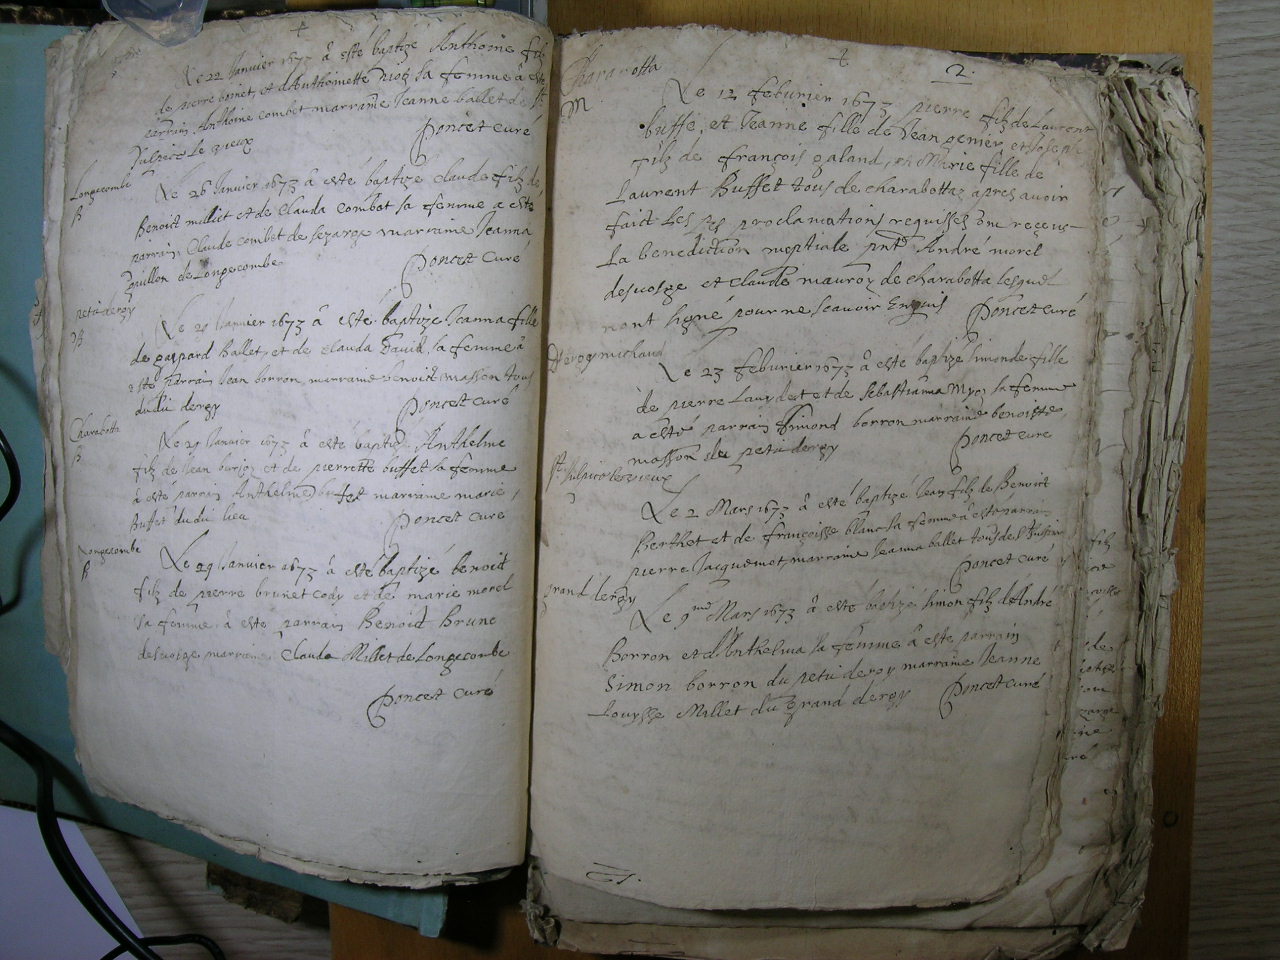 Le 22 Janvier 1673 à esté baptizé Anthoine filz
de pierre et d'Anthoinette sa femme à esté
parrain Anthoine combet marraine Jeanne ballet de St
Sulpice le vieux
Poncet curé
Longecombe
B
Le 26 Janvier 1673 à esté baptizé Claude filz de
Benoit milliet et de Clauda combet sa femme a esté
parrain Claude combet de marraine Jeanna
guillon de Longecombe
Poncet curé
petit deroy
B
Le 29 Janvier 1673 à esté baptizé Jeanna fille
de gaspard Ballet, et de Clauda David sa femme à
esté parrain Jean borron, marraine benoite masson tous
dudit deroy
Poncet curé
Charabotta
B
Le 29 Janvier 1673 à esté baptizé Anthelme
filz de Jean et de pierrette buffet sa femme
à esté parrain Anthelme buffet marraine marie
Buffet dudit lieu
Poncet curé
Longecombe
B
Le 29 Janvier 1673 à esté baptizé benoit
filz de pierre brunet et de marie morel
sa femme à este parrain Benoit Brune
marraine Claude Millet de Longecombe
Poncet curé
2.
Charabotta
M
Le 12 feburier 1673 pierre filz de Laurent
buffé, et Jeanne fille de Jean genier et Joseph
filz de françois galand, et Marie fille de
Laurent Buffet tous de charabottaz apres avoir
faict les proclamations requisses ont receus
La benediction nuptiale pnts André morel
et Claude mauroy de charabotta lesquel
nont signé pour ne scavoir Enquis
Poncet curé
Deroy michaud
Le 23 feburier 1673 à esté baptizé Simonde fille
de pierre et de Sebastianna sa femme
a esté parrain Simond borron marraine benoiste
masson du petit deroy
Poncet curé
St Sulpice le vieux
Le 2 Mars 1673 à esté baptizé Jean filz de Benoit
Berthet et de françoisse blanc sa femme à esté parrain
pierre Jacquemet marraine Jeanna ballet tous de St Sulpice
Poncet curé
grand deroy
Le 9me Mars 1673 à esté baptizé simon filz d'André
Borron et d'Anthelma sa femme à este parrain
Simon borron du petit deroy marraine Jeanne
Louysse Millet du grand deroy
Poncet curé